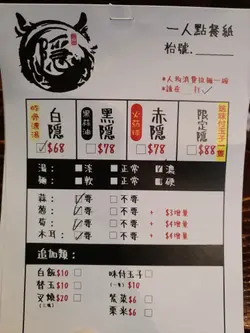 隱
一人點餐紙
枱號
*人均消費拉麵一碗
*請在 打✓
豚骨濃湯
白隱
$68
黑蒜油
黑隱
$78
火焰球
赤隱
$78
送味付玉子一隻
限定隱
$88
湯: 淡 正常 濃
麵: 軟 正常 硬
蒜: 要 不要
蔥: 要 不要 + $3增量
筍: 要 不要 + $4增量
木耳: 要 不要 + $4增量
追加類:
白飯$10 味付玉子
替玉$10 (一隻) $10
叉燒$20 紫菜$6
粟米$6